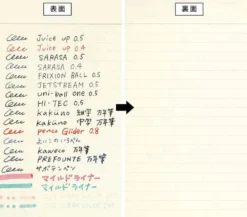 表面
裏面
Juice up 0.5
Juice up 0.4
SARASA 0.5
SARASA 0.4
FRIXION BALL 0.5
JETSTREAM 0.5
uni-ball one 0.5
HI-TEC 0.5
kaküno 細字 万年筆
kaküno 中字 万年筆
penco Glider 0.8
よいこのいちペん
kaweco 万年筆
PREFOUNTE 万年筆
サボテンペン
マイルドライナー
マイルドライナー